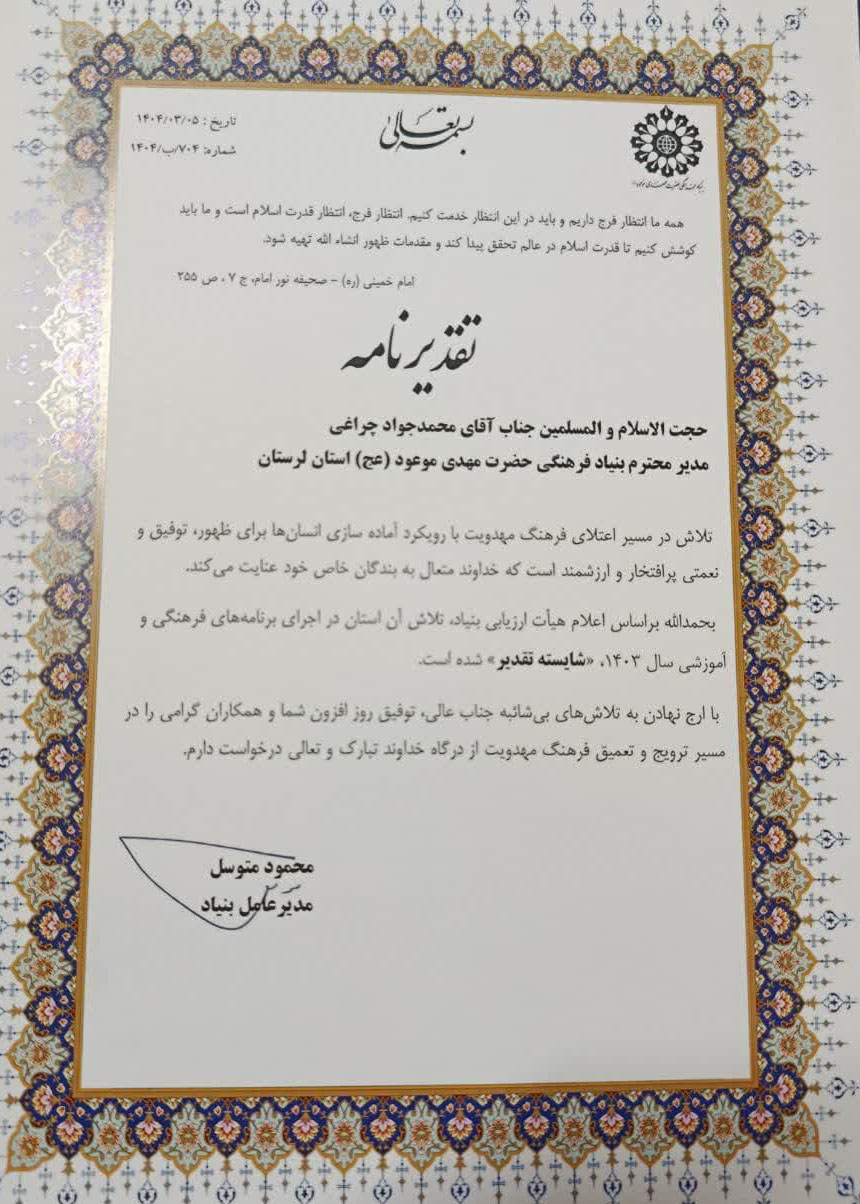 بسمه تعالی
تاریخ : ۱۴۰۴/۰۳/۰۵
شماره: ۷۰۴/ب/۱۴۰۴
همه ما انتظار فرج داریم و باید در این انتظار خدمت کنیم. انتظار فرج، انتظار قدرت اسلام است و ما باید
کوشش کنیم تا قدرت اسلام در عالم تحقق پیدا کند و مقدمات ظهور انشاء الله تهیه شود.
امام خمینی (ره) – صحیفه نور امام، ج ۷ ، ص ۲۵۵
تقدیرنامه
حجت الاسلام و المسلمین جناب آقای محمدجواد چراغی
مدیر محترم بنیاد فرهنگی حضرت مهدی موعود (عج) استان لرستان
تلاش در مسیر اعتلای فرهنگ مهدویت با رویکرد آماده سازی انسان‌ها برای ظهور، توفیق و
نعمتی پرافتخار و ارزشمند است که خداوند متعال به بندگان خاص خود عنایت می‌کند.
بحمدالله براساس اعلام هیأت ارزیابی بنیاد، تلاش آن استان در اجرای برنامه‌های فرهنگی و
آموزشی سال ۱۴۰۳، «شایسته تقدیر» شده است.
با ارج نهادن به تلاش‌های بی‌شائبه جناب عالی، توفیق روز افزون شما و همکاران گرامی را در
مسیر ترویج و تعمیق فرهنگ مهدویت از درگاه خداوند تبارک و تعالی درخواست دارم.
محمود متوسل
مدیرعامل بنیاد